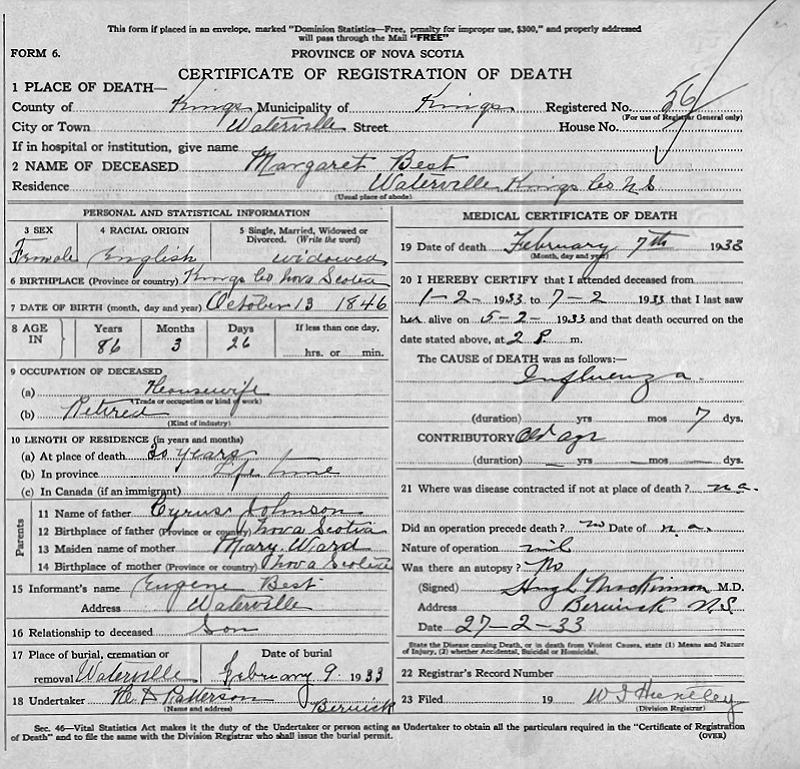 This form if placed in an envelope, marked "Dominion Statistics—Free, penalty for improper use, $300," and properly addressed
will pass through the Mail "FREE"
FORM 6.
PROVINCE OF NOVA SCOTIA
CERTIFICATE OF REGISTRATION OF DEATH
1 PLACE OF DEATH—
County of Kings Municipality of Kings Registered No. 56
(For use of Registrar General only)
City or Town Waterville Street House No.
If in hospital or institution, give name
2 NAME OF DECEASED Margaret Best
Residence Waterville Kings Co N S
(Usual place of abode)
PERSONAL AND STATISTICAL INFORMATION
3 SEX 4 RACIAL ORIGIN 5 Single, Married, Widowed or
Divorced. (Write the word)
Female English widowed
6 BIRTHPLACE (Province or country) Kings Co Nova Scotia
7 DATE OF BIRTH (month, day and year) October 13 1846
8 AGE IN Years Months Days If less than one day.
86 3 26 hrs. or min.
9 OCCUPATION OF DECEASED
(a) Housewife
(Trade or occupation or kind of work)
(b) Retired
(Kind of industry)
10 LENGTH OF RESIDENCE (in years and months)
(a) At place of death 30 years
(b) In province Life time
(c) In Canada (if an immigrant)
Parents
11 Name of father Cyrus Johnson
12 Birthplace of father (Province or country) Nova Scotia
13 Maiden name of mother Mary Ward
14 Birthplace of mother (Province or country) Nova Scotia
15 Informant's name Eugene Best
Address Waterville
16 Relationship to deceased Son
17 Place of burial, cremation or Date of burial
removal Waterville February 9 1933
18 Undertaker H. D Patterson
(Name and address) Berwick
MEDICAL CERTIFICATE OF DEATH
19 Date of death February 7th 1933
(Month, day and year)
20 I HEREBY CERTIFY that I attended deceased from
1-2-1933 to 7-2 1933 that I last saw
her alive on 5-2-1933 and that death occurred on the
date stated above, at 2 P. m.
The CAUSE of DEATH was as follows:—
Influenza.
(duration) yrs mos 7 dys.
CONTRIBUTORY Old age
(duration) yrs mos dys.
21 Where was disease contracted if not at place of death? n.a.
Did an operation precede death? no Date of n.a.
Nature of operation nil
Was there an autopsy? No
(Signed) Hugh MacKinnon M.D.
Address Berwick N.S.
Date 27-2-33
State the Disease causing Death, or in death from Violent Causes, state (1) Means and Nature
of Injury, (2) whether Accidental, Suicidal or Homicidal.
22 Registrar's Record Number
23 Filed 19 W I Huntley
(Division Registrar)
Sec. 46—Vital Statistics Act makes it the duty of the Undertaker or person acting as Undertaker to obtain all the particulars required in the "Certificate of Registration
of Death" and to file the same with the Division Registrar who shall issue the burial permit.
(OVER)